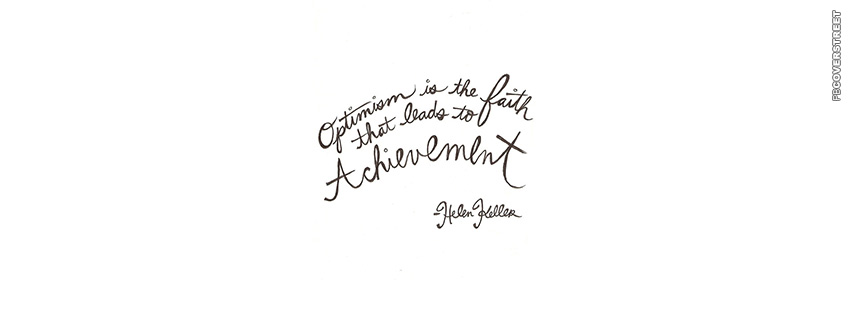 Optimism is the faith
that leads to
Achievement
-Helen Keller
FBCOVERSTREET